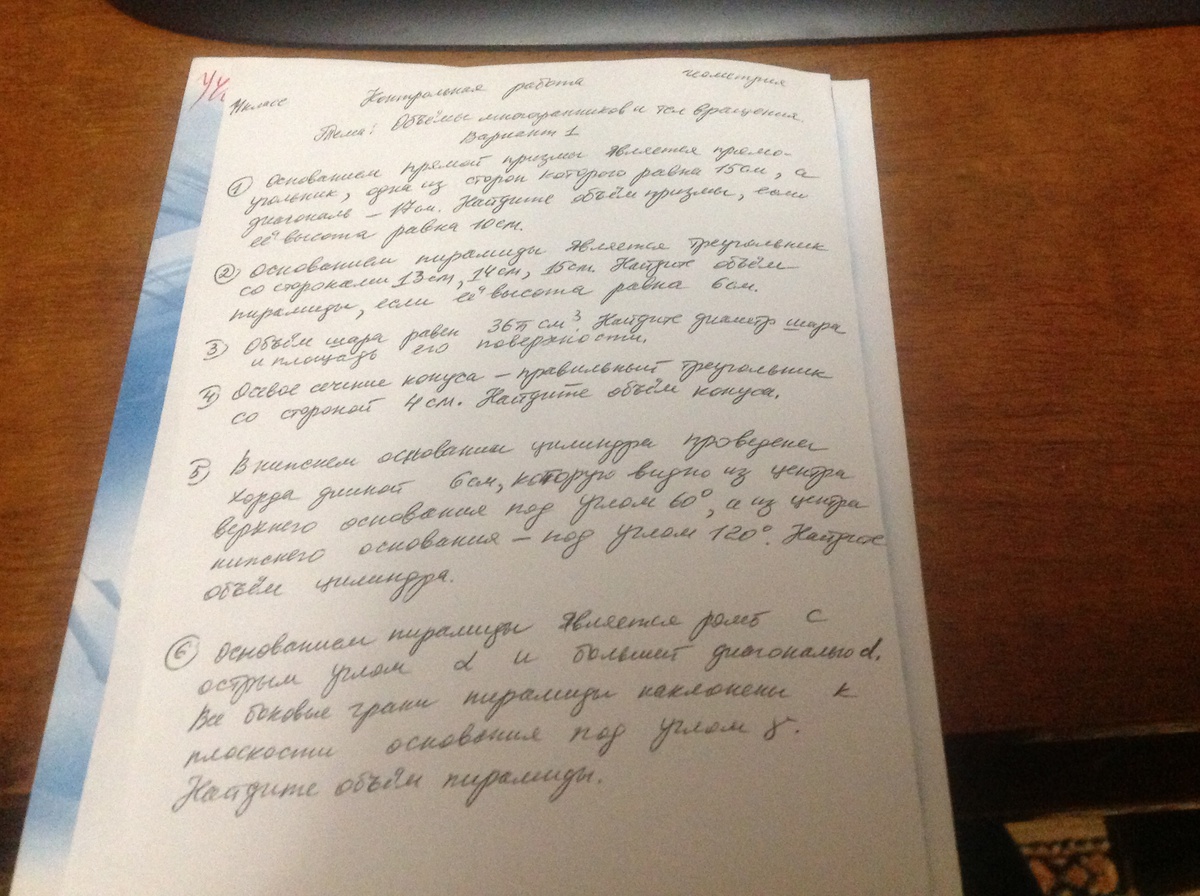 11 класс Контрольная работа геометрия
Тема: Объёмы многогранников и тел вращения.
Вариант 1
1 Основанием прямой призмы является прямо-
угольник, одна из сторон которого равна 15см, а
диагональ – 17см. Найдите объём призмы, если
её высота равна 10см.
2 Основанием пирамиды является треугольник
со сторонами 13см, 14см, 15см. Найдите объём
пирамиды, если её высота равна 6см.
3 Объём шара равен 36π см³. Найдите диаметр шара
и площадь его поверхности.
4 Осевое сечение конуса – правильный треугольник
со стороной 4см. Найдите объём конуса.
5 В нижнем основании цилиндра проведена
хорда длиной 6см, которую видно из центра
верхнего основания под углом 60°, а из центра
нижнего основания – под углом 120°. Найдите
объём цилиндра.
6 Основанием пирамиды является ромб с
острым углом α и большей диагональю d.
Все боковые грани пирамиды наклонены к
плоскости основания под углом γ.
Найдите объём пирамиды.